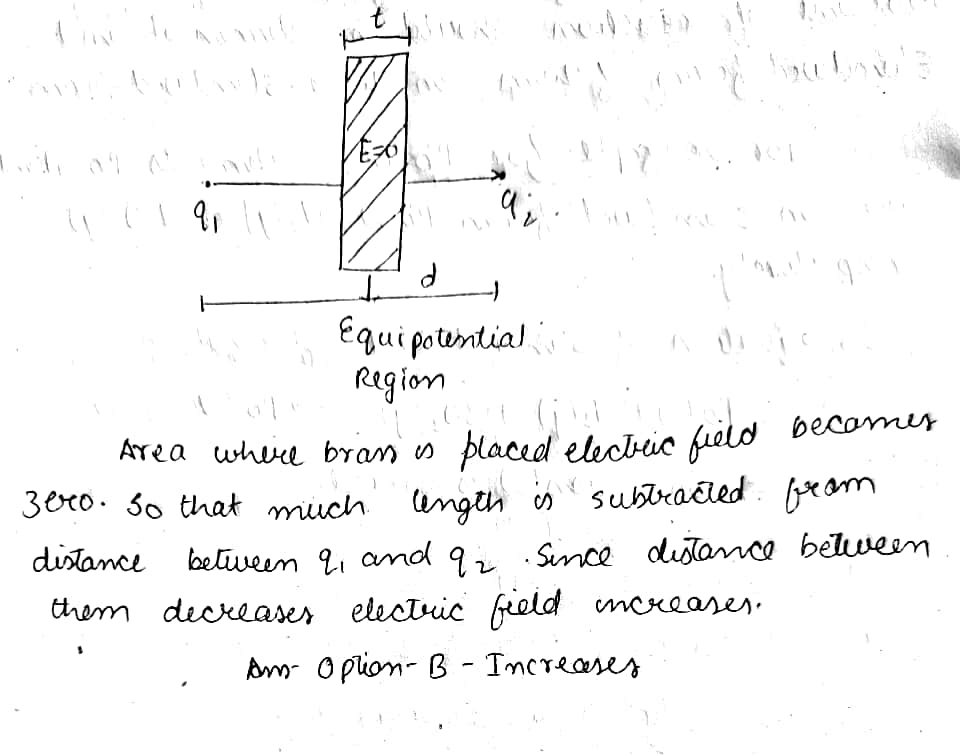 t
E=0
q₁
q₂
d
Equipotential
Region
Area where brass is placed electric field becomes
zero. So that much length is subtracted from
distance between q₁ and q₂. Since distance between
them decreases electric field increases.
Ans- Option- B - Increases